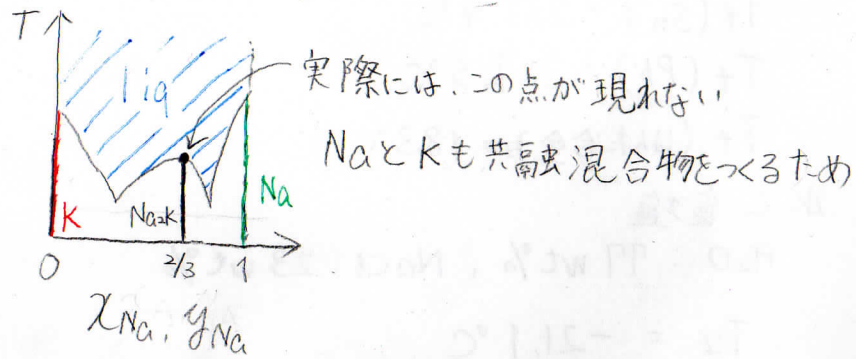 T
liq
実際には、この点が現れない
NaとKも共融混合物をつくるため
K
Na₂K
Na
0
2/3
1
x_Na, y_Na